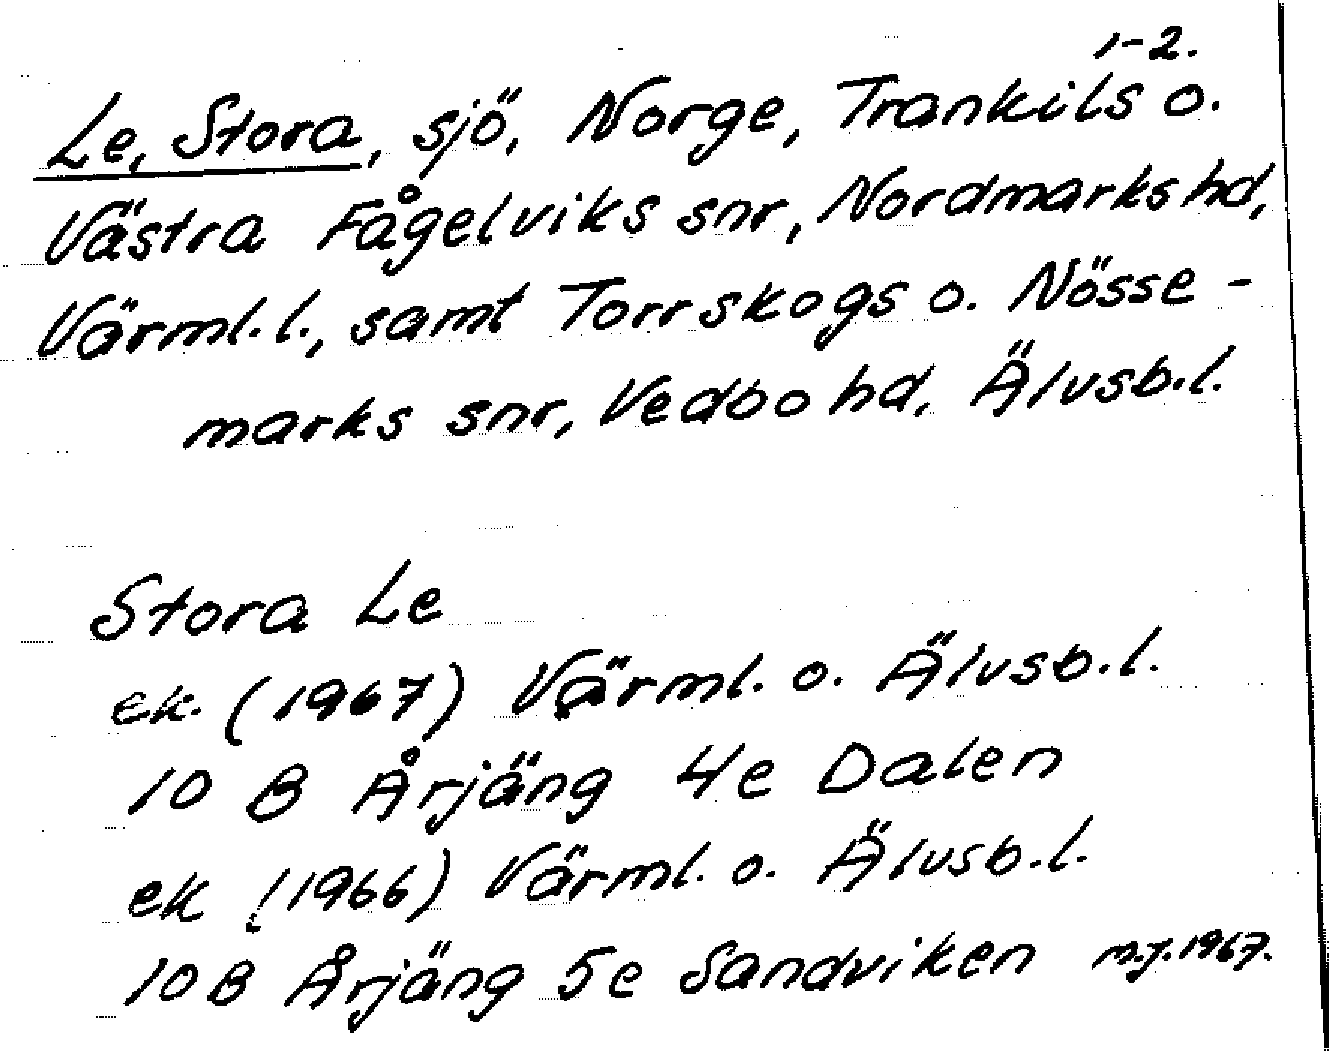 1-2.
Le, Stora, sjö, Norge, Trankils o.
Västra Fågelviks snr, Nordmarks hd,
Värml. l., samt Torrskogs o. Nösse-
marks snr, Vedbo hd, Älvsb. l.
Stora Le
ek. (1967) Värml. o. Älvsb. l.
10 B Årjäng 4e Dalen
ek (1966) Värml. o. Älvsb. l.
10B Årjäng 5e Sandviken m.j. 1967.